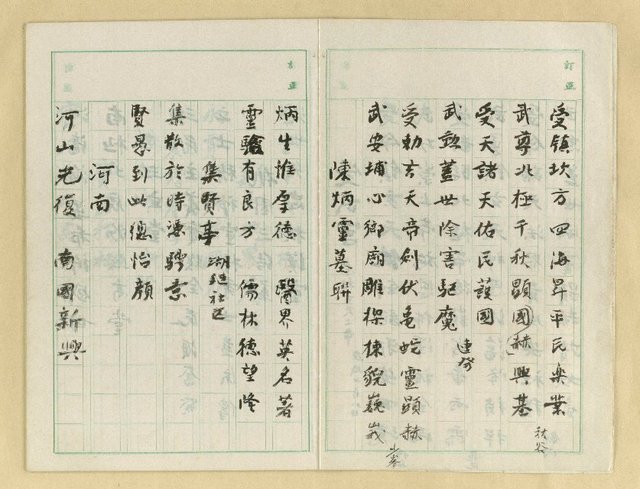 受鎮坎方四海昇平民樂業
武尊北極千秋顯國赫興基 秋谷
受天諸天佑民護國
武勳蓋世除害驅魔 連發
受勅玄天帝劍伏龜蛇靈顯赫
武安埔心鄉廟雕樑棟貌巍峨
陳炳靈墓聯
炳生惟厚德 醫界英名著
靈驗有良方 儒林德望隆
集賢亭 湖 社区
集散於時憑騁意
賢愚到此總怡顏
河南
河山光復 南國新興